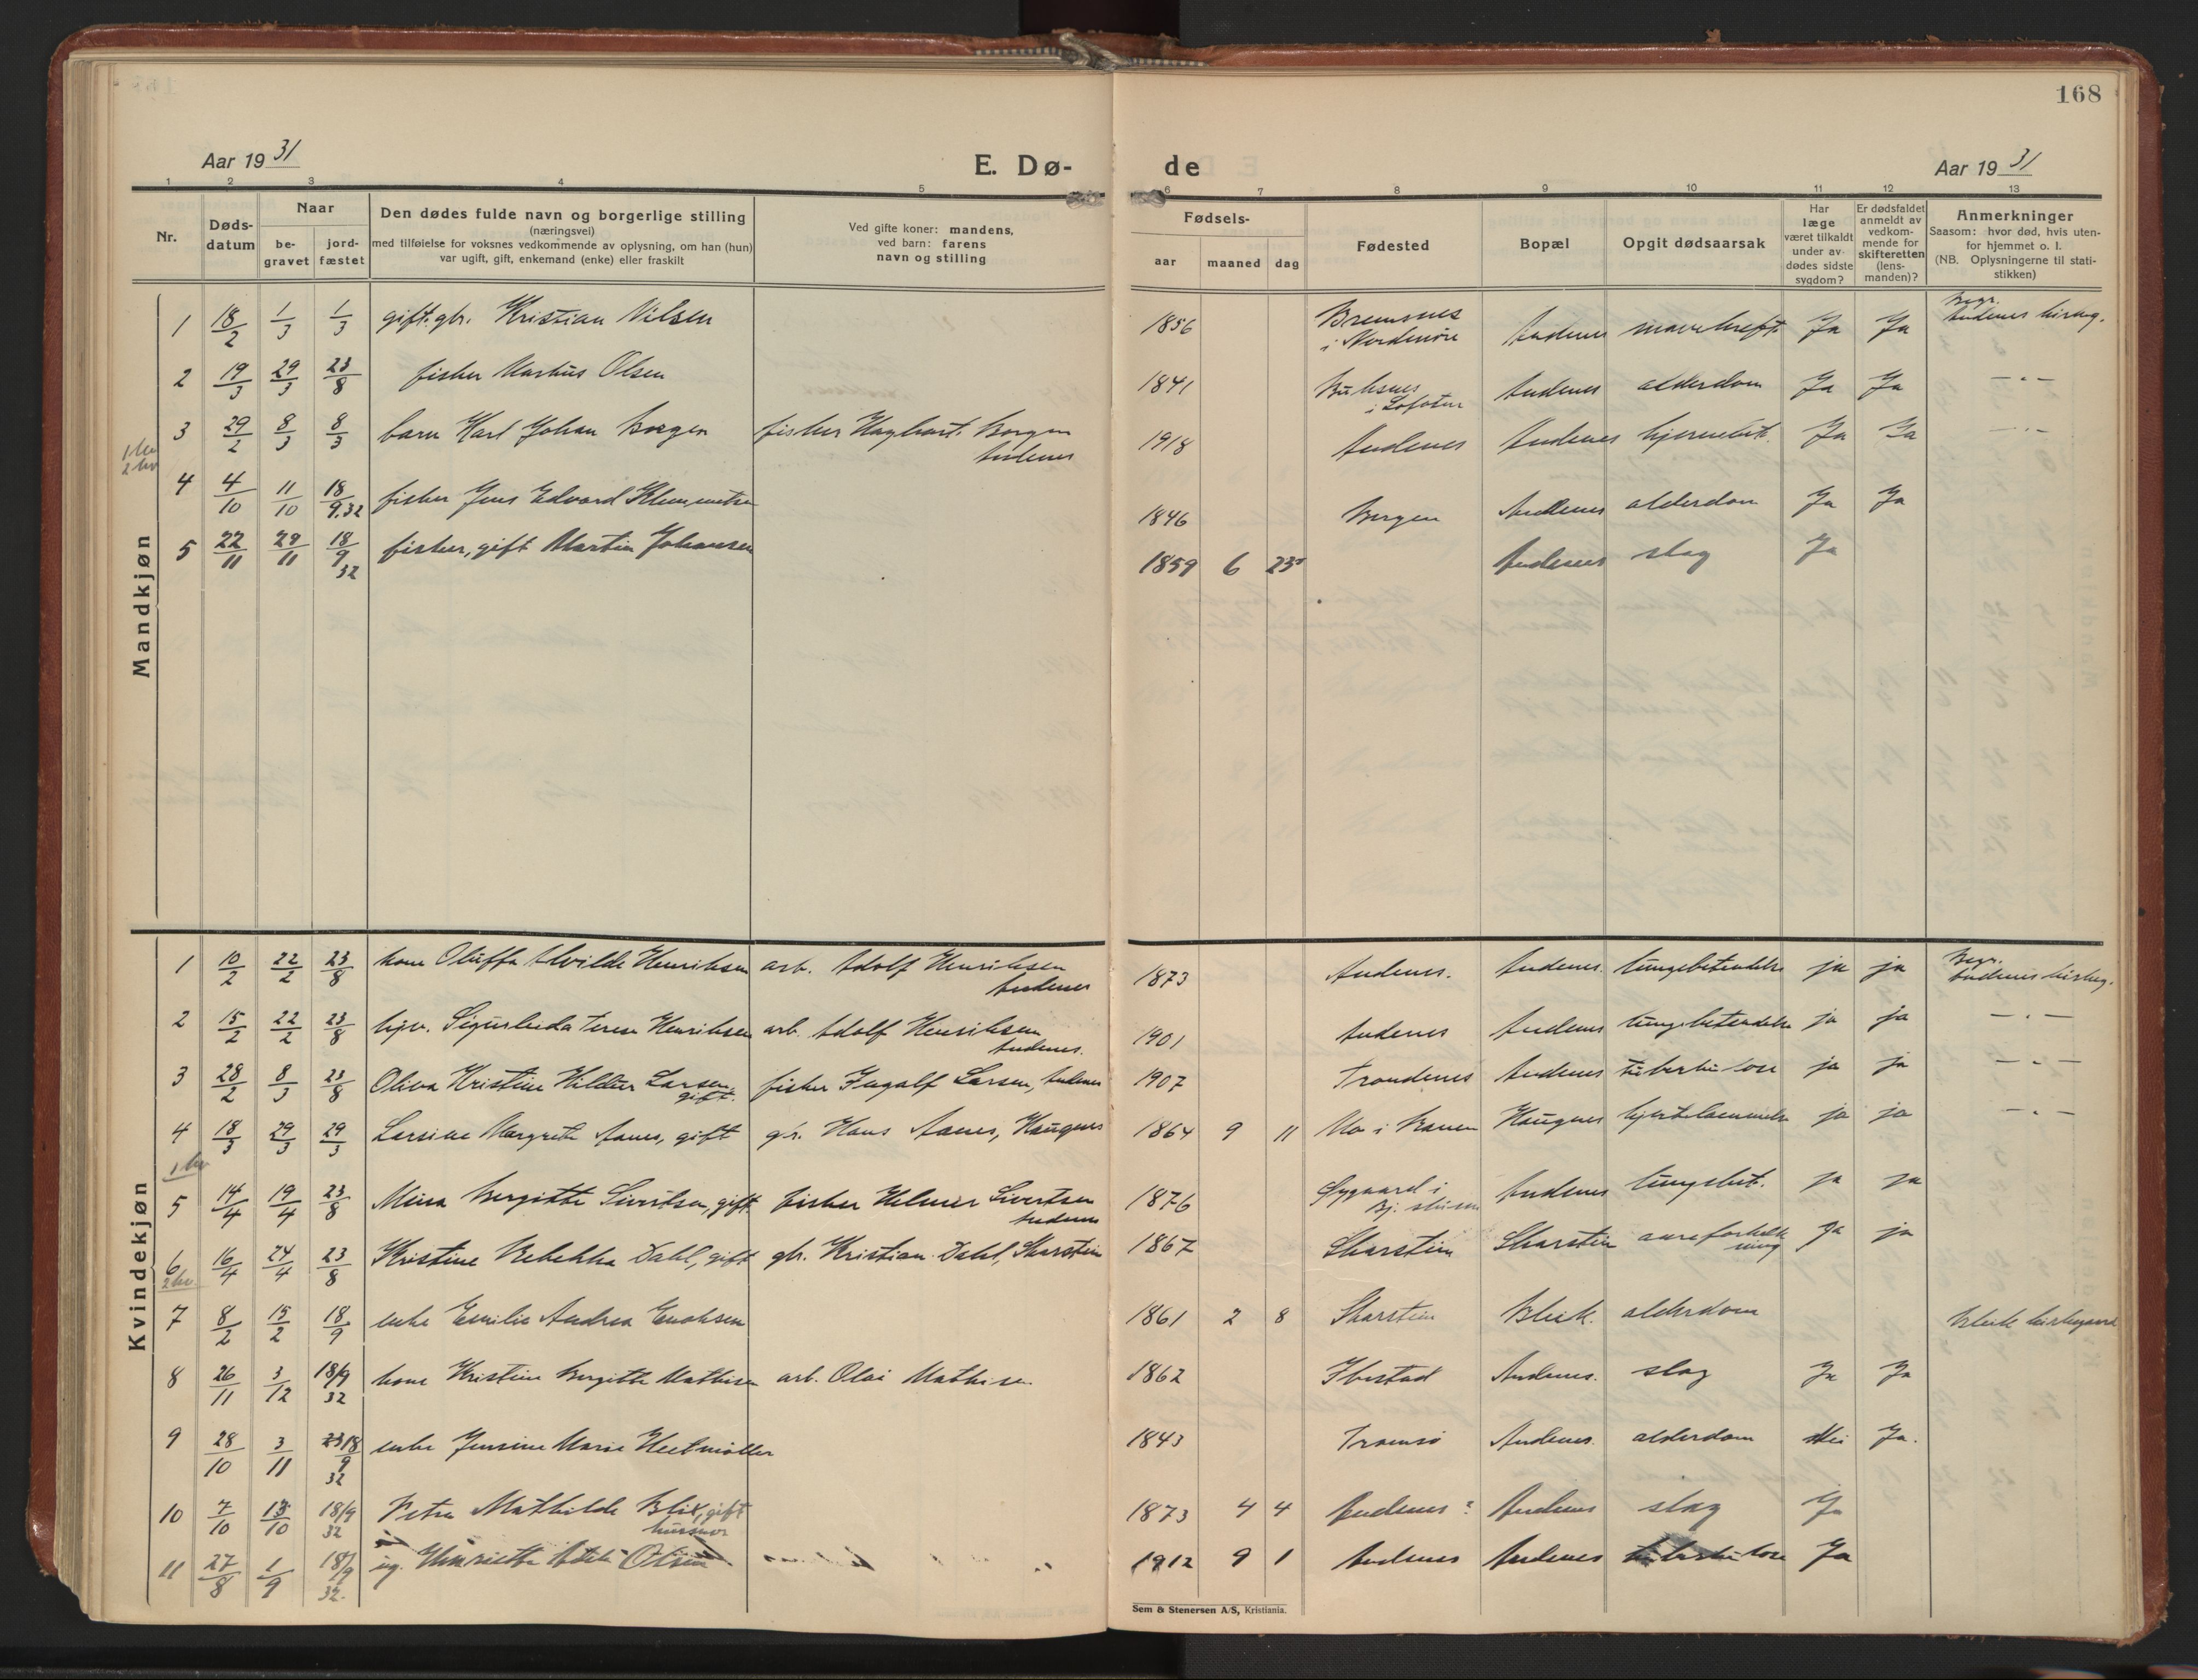 168
Aar 1931
E. Dø-
de
Aar 1931
1 2 3 4 5 6 7 8 9 10 11 12 13
Nr.
Døds-
datum
Naar
be-
gravet
jord-
fæstet
Den dødes fulde navn og borgerlige stilling
(næringsvei)
med tilføielse for voksnes vedkommende av oplysning, om han (hun)
var ugift, gift, enkemand (enke) eller fraskilt
Ved gifte koner: mandens,
ved barn: farens
navn og stilling
Fødsels-
aar maaned dag
Fødested
Bopæl
Opgit dødsaarsak
Har
læge
været tilkaldt
under av-
dødes sidste
sygdom?
Er dødsfaldet
anmeldt av
vedkom-
mende for
skifteretten
(lens-
manden)?
Anmerkninger
Saasom: hvor død, hvis uten-
for hjemmet o. l.
(NB. Oplysningerne til stati-
stikken)
Mandkjøn
1 18/2 1/3 1/3 gift. gbr. Kristian Nilsen 1856 Bremsnes i Nordmøre Andenes mavekreft Ja Ja Begr. Andenes kirkeg.
2 19/3 29/3 23/8 fisker Markus Olsen 1841 Buksnes i Lofoten Andenes alderdom Ja Ja — " —
3 29/2 8/3 8/3 barn Karl Johan Borgen fisker Haghart Borgen Andenes 1918 Andenes Andenes hjernebet. Ja Ja — " —
1 kv
2 kv
4 4/10 11/10 18/9.32 fisker Jens Edvard Klemmetsen 1846 Bergen Andenes alderdom Ja Ja
5 22/11 29/11 18/9 32 fisker, gift Martin Johansen 1859 6 23 Andenes slag Ja
Kvindekjøn
1 10/2 22/2 23/8 kone Oluffa Alvilde Henriksen arb. Adolf Henriksen Andenes 1873 Andenes. Andenes. lungebetendelse ja ja Begr. Andenes kirkeg.
2 15/2 22/2 23/8 Terese Henriksen arb. Adolf Henriksen Andenes. 1901 Andenes Andenes lungebetendelse ja ja — " —
3 28/2 8/3 23/8 Oliva Kristine Hildur Larsen, gift. fisker Ingolf Larsen, Andenes 1907 Trondenes Andenes tuberkulose ja ja — " —
4 18/3 29/3 29/3 Larsine Margrete Aanes, gift gbr. Hans Aanes, Haugnes 1864 9 11 Mo i Ranen Haugnes hjertelammelse ja ja — " —
1 kv
5 14/4 19/4 23/8 Mina Bergitte Sivertsen, gift. fisker Helmer Sivertsen Andenes 1876 Andenes lungebet. ja ja
6 16/4 24/4 23/8 Kristine Rebekka Dahl, gift gbr. Kristian Dahl, Skarstein 1867 Skarstein Skarstein aareforkalkning Ja ja
2 kv
7 8/2 15/2 18/9 enke Emilie Andrea Enoksen 1861 2 8 Skarstein Bleik. alderdom Bleik kirkegaard
8 26/11 3/12 18/9 32 kone Kristine Bergitte Mathisen arb. Olai Mathisen 1862 Ibestad Andenes. slag Ja Ja
9 28/10 3/11 18/9 32 enke Jensine Marie Heitmøller 1843 Tromsø Andenes. alderdom Nei Ja.
10 7/10 13/10 18/9 32 Petra Mathilde Blix, gift husmor 1873 4 4 Andenes? Andenes slag Ja
11 27/8 1/9 18/9 32. ug. Henriette Olsen 1912 9 1 Andenes Andenes tuberkulose Ja
Sem & Stenersen A/S, Kristiania.